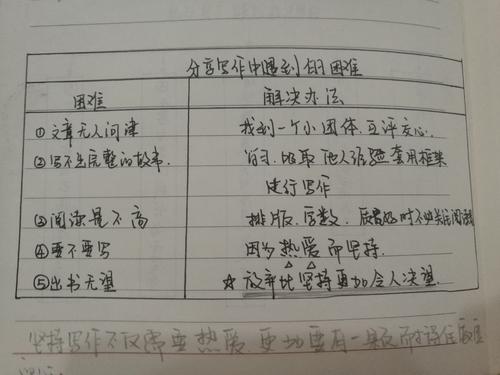 分享写作中遇到的困难
困难 解决办法
①文章无人问津 找到一个小团体,互评交心.
②写不出完整的故事. 学习、吸取他人经验套用框架
进行写作
③阅读量不高 排版、字数、质量 时不必关注阅读
④要不要写 因为热爱而坚持.
⑤出书无望 ☆放弃比坚持更加令人决望.
坚持写作不仅需要热爱 更加要有一颗耐得住